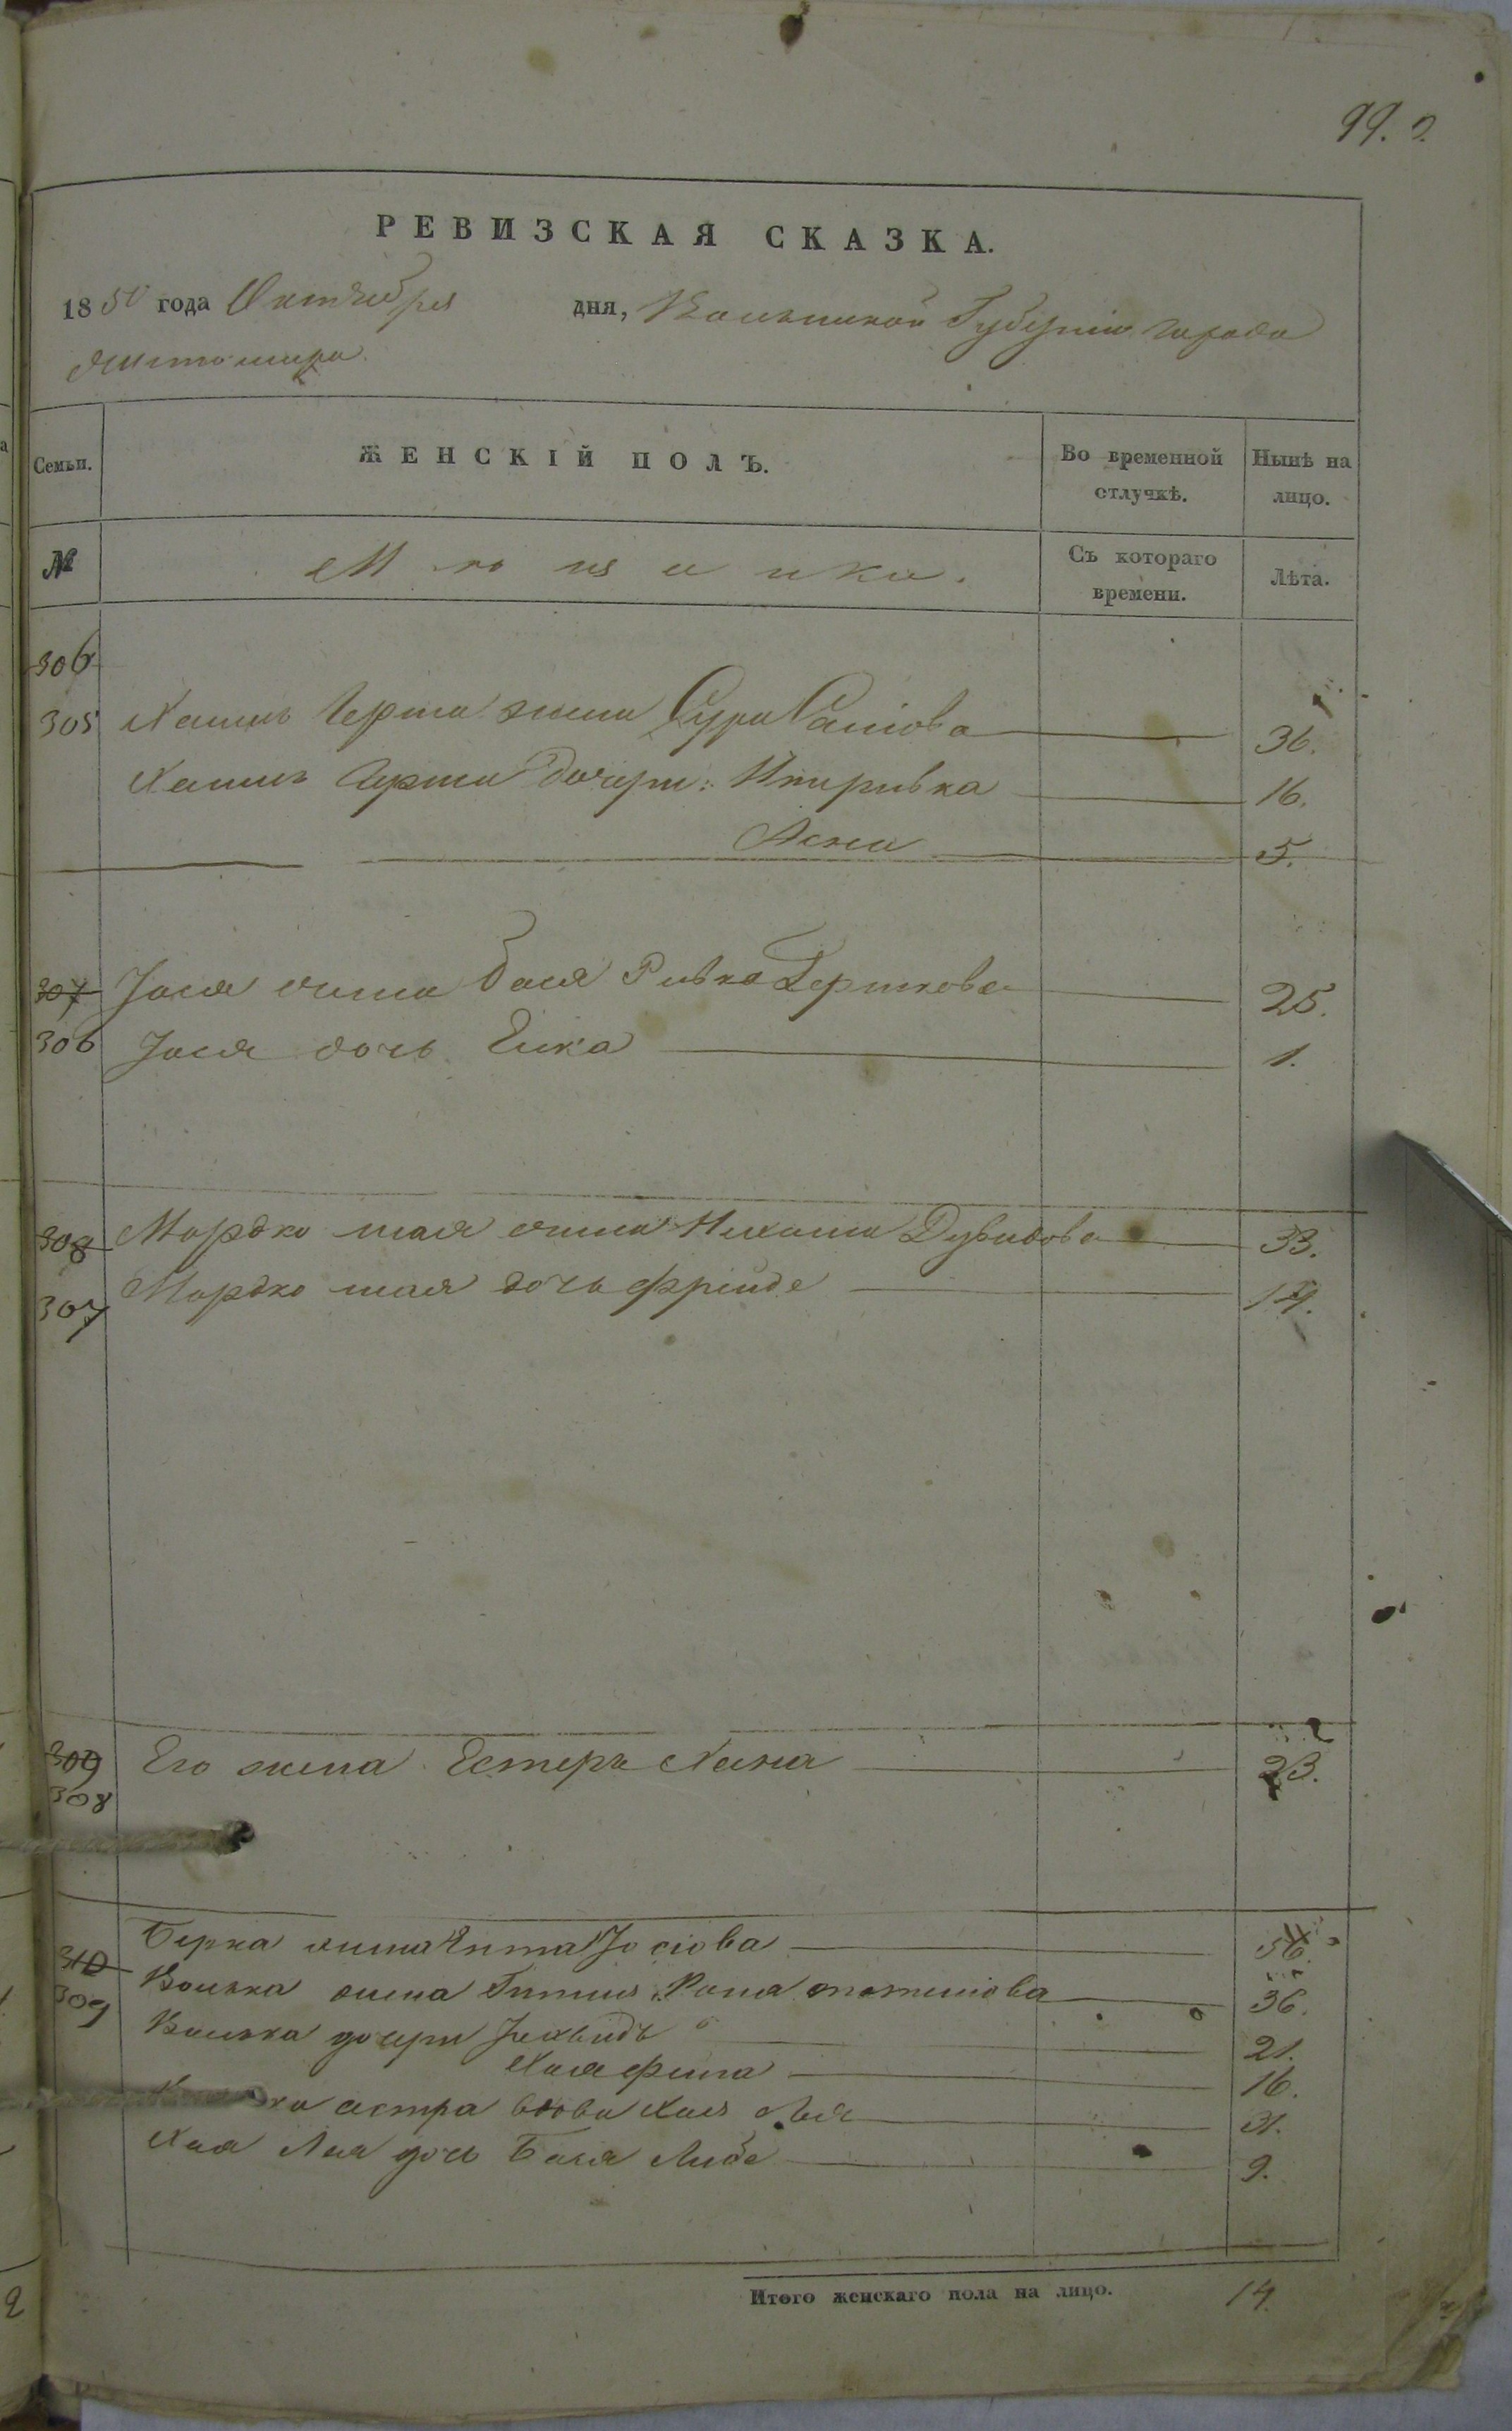 99.
РЕВИЗСКАЯ СКАЗКА.
1850 года Октября дня, Волынской Губернии города
Житомира.
Семьи. ЖЕНСКІЙ ПОЛЪ. Во временной отлучкѣ. Нынѣ на лицо.
№ Мѣщанки. Съ котораго времени. Лѣта.
306
305 Хаимъ Герша жена Сура 36.
Хаимъ Герша дочери: 16.
Асна 5.
307 Іося жена Бася Ривка Гершкова 25.
306 Іося дочь Еика 1.
308 Мордко шая жена Нихама Дувидова 33.
307 Мордко шая дочь Фрейде 14.
309 Его жена Естеръ Хана 23.
308
310 Берка жена Ента Іосіова 56.
309 Волька жена 36.
Волька дочери 21.
16.
вдова Хая Лея 31.
Хая Лея дочь Бася Либе 9.
Итого женскаго пола на лицо. 14.